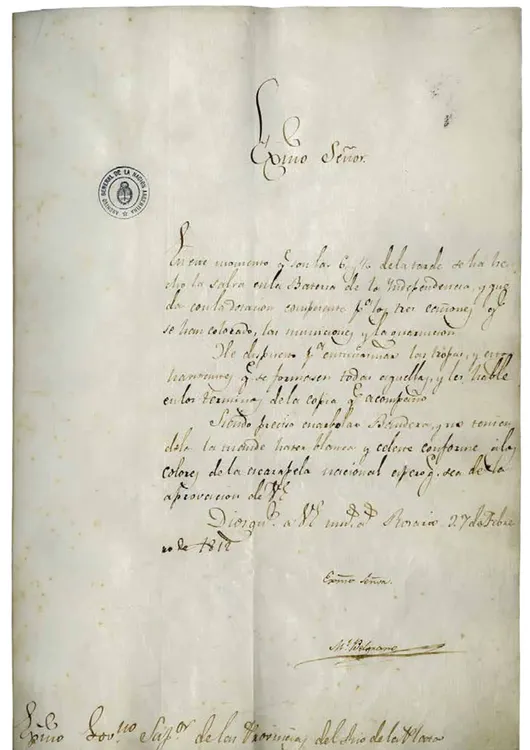 Exmo Señor.
ARCHIVO GENERAL DE LA NACION ARGENTINA
En este momento q.e son las 6 y ½ de la tarde se ha he
cho la salva en la Bateria de la Independencia, y que
da con la dotacion competente p.a los tres cañones q.e
se han colocado, las municiones y la guarnicion.
He dispuesto p.a entusiasmar las tropas, y estos
havitantes q.e se formasen todas aquellas, y les hablé
en los terminos de la copia q.e acompaño.
Siendo preciso enarbolar Bandera, y no tenien
dola la mandé hacer blanca y celeste conforme á los
colores de la escarapela nacional espero q.e sea de la
aprovacion de VE
Dios gu.e a VE m.s a.s Rosario 27 de Febre
ro de 1812
Exmo Señor.
M.l Belgrano
Exmo Gov.no Sup.or de las Provincias del Rio de la Plata